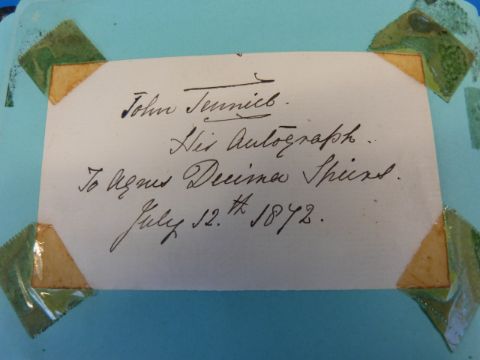 John Tenniel.
His Autograph.
To Agnes Decima Spiers.
July 12.th 1872.